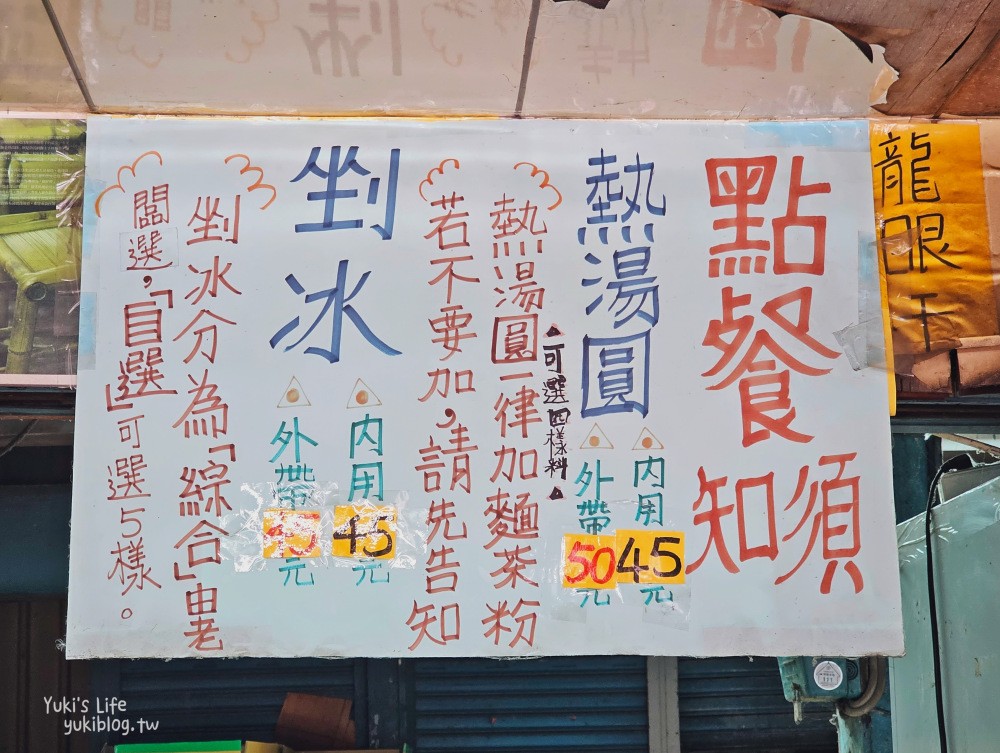 點餐須知
熱湯圓
▲可選四樣料▲
內用45元
外帶50元
熱湯圓一律加麵茶粉
若不要加,請先告知
剉冰
內用45元
外帶45元
剉冰分為「綜合」由老
闆選,「自選」可選5樣。
龍眼干
Yuki's Life
yukiblog.tw